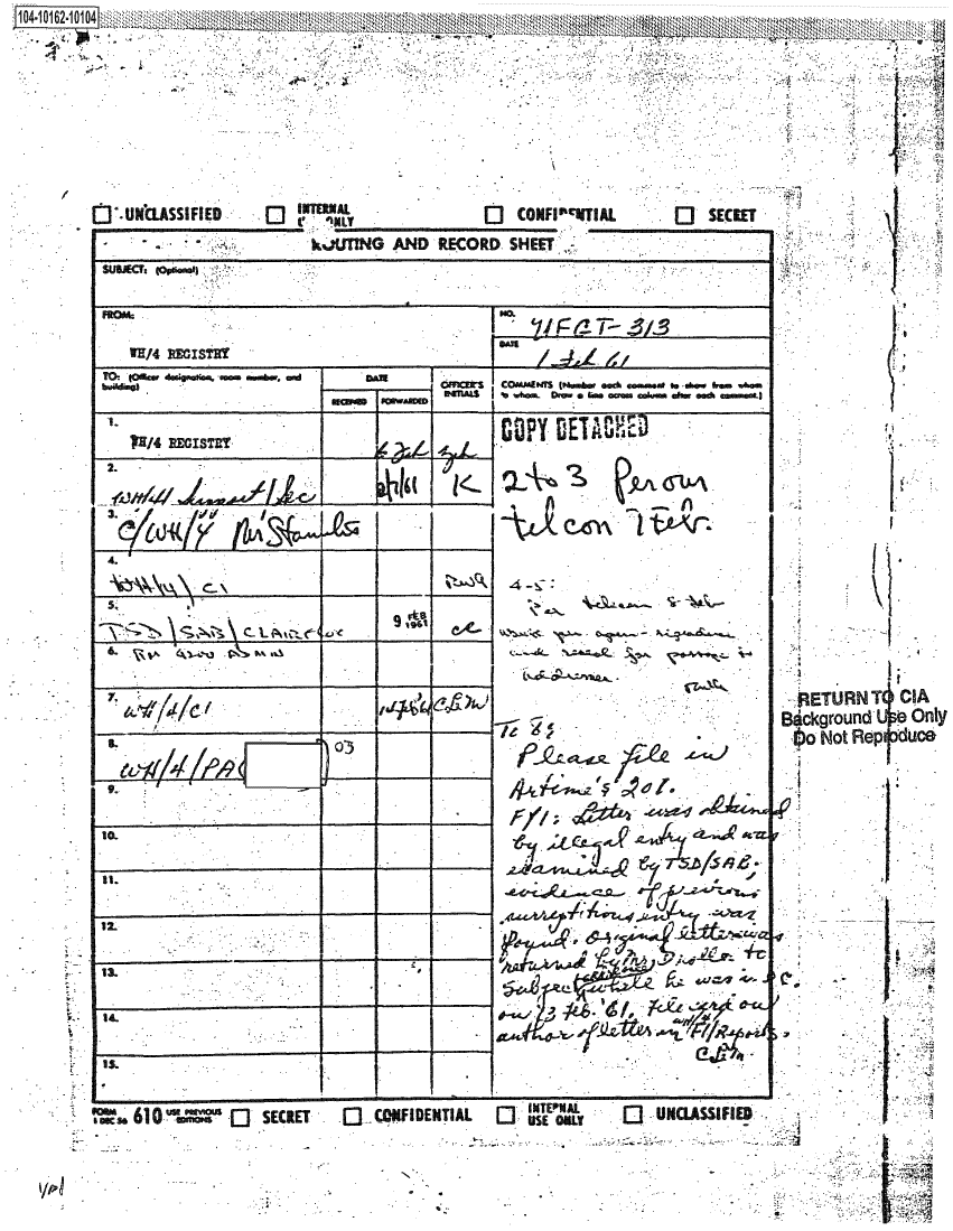 104-10162-10104
UNCLASSIFIED INTERNAL ONLY CONFIDENTIAL SECRET
ROUTING AND RECORD SHEET
SUBJECT: (Optional)
FROM:
WH/4 REGISTRY
NO.
313
DATE
1 Feb 61
TO: (Officer designation, room number, and building)
DATE
RECEIVED FORWARDED
OFFICER'S INITIALS
COMMENTS (Number each comment to show from whom to whom. Draw a line across column after each comment.)
1.
WH/4 REGISTRY
6 Feb
COPY DETACHED
2.
WH/4/ Support/Sec
2/7/61 K
2 to 3 Per our
telcon 7 Feb.
3.
C/WH/4
4.
WH/4/CI
4-5:
Per telecon 8 Feb
5.
TSD/SAB/
9 FEB 1961
and reseal for passage to
addressee.
6. RM ADMIN
7.
WH/4/CI
8.
WH/4/PA 03
Please file in
Artime's 201.
FYI: Letter was obtained
by illegal entry and was
examined by TSD/SAB;
evidence of previous
surreptitious entry was
found. Original letter was
returned by Mr. to
Subject while he was in
on 13 Feb. '61. File card on
author of letter in WH/4 FI/Reports.
9.
10.
11.
12.
13.
14.
15.
RETURN TO CIA
Background Use Only
Do Not Reproduce
FORM 1 DEC 56 610 USE PREVIOUS EDITIONS SECRET CONFIDENTIAL INTERNAL USE ONLY UNCLASSIFIED